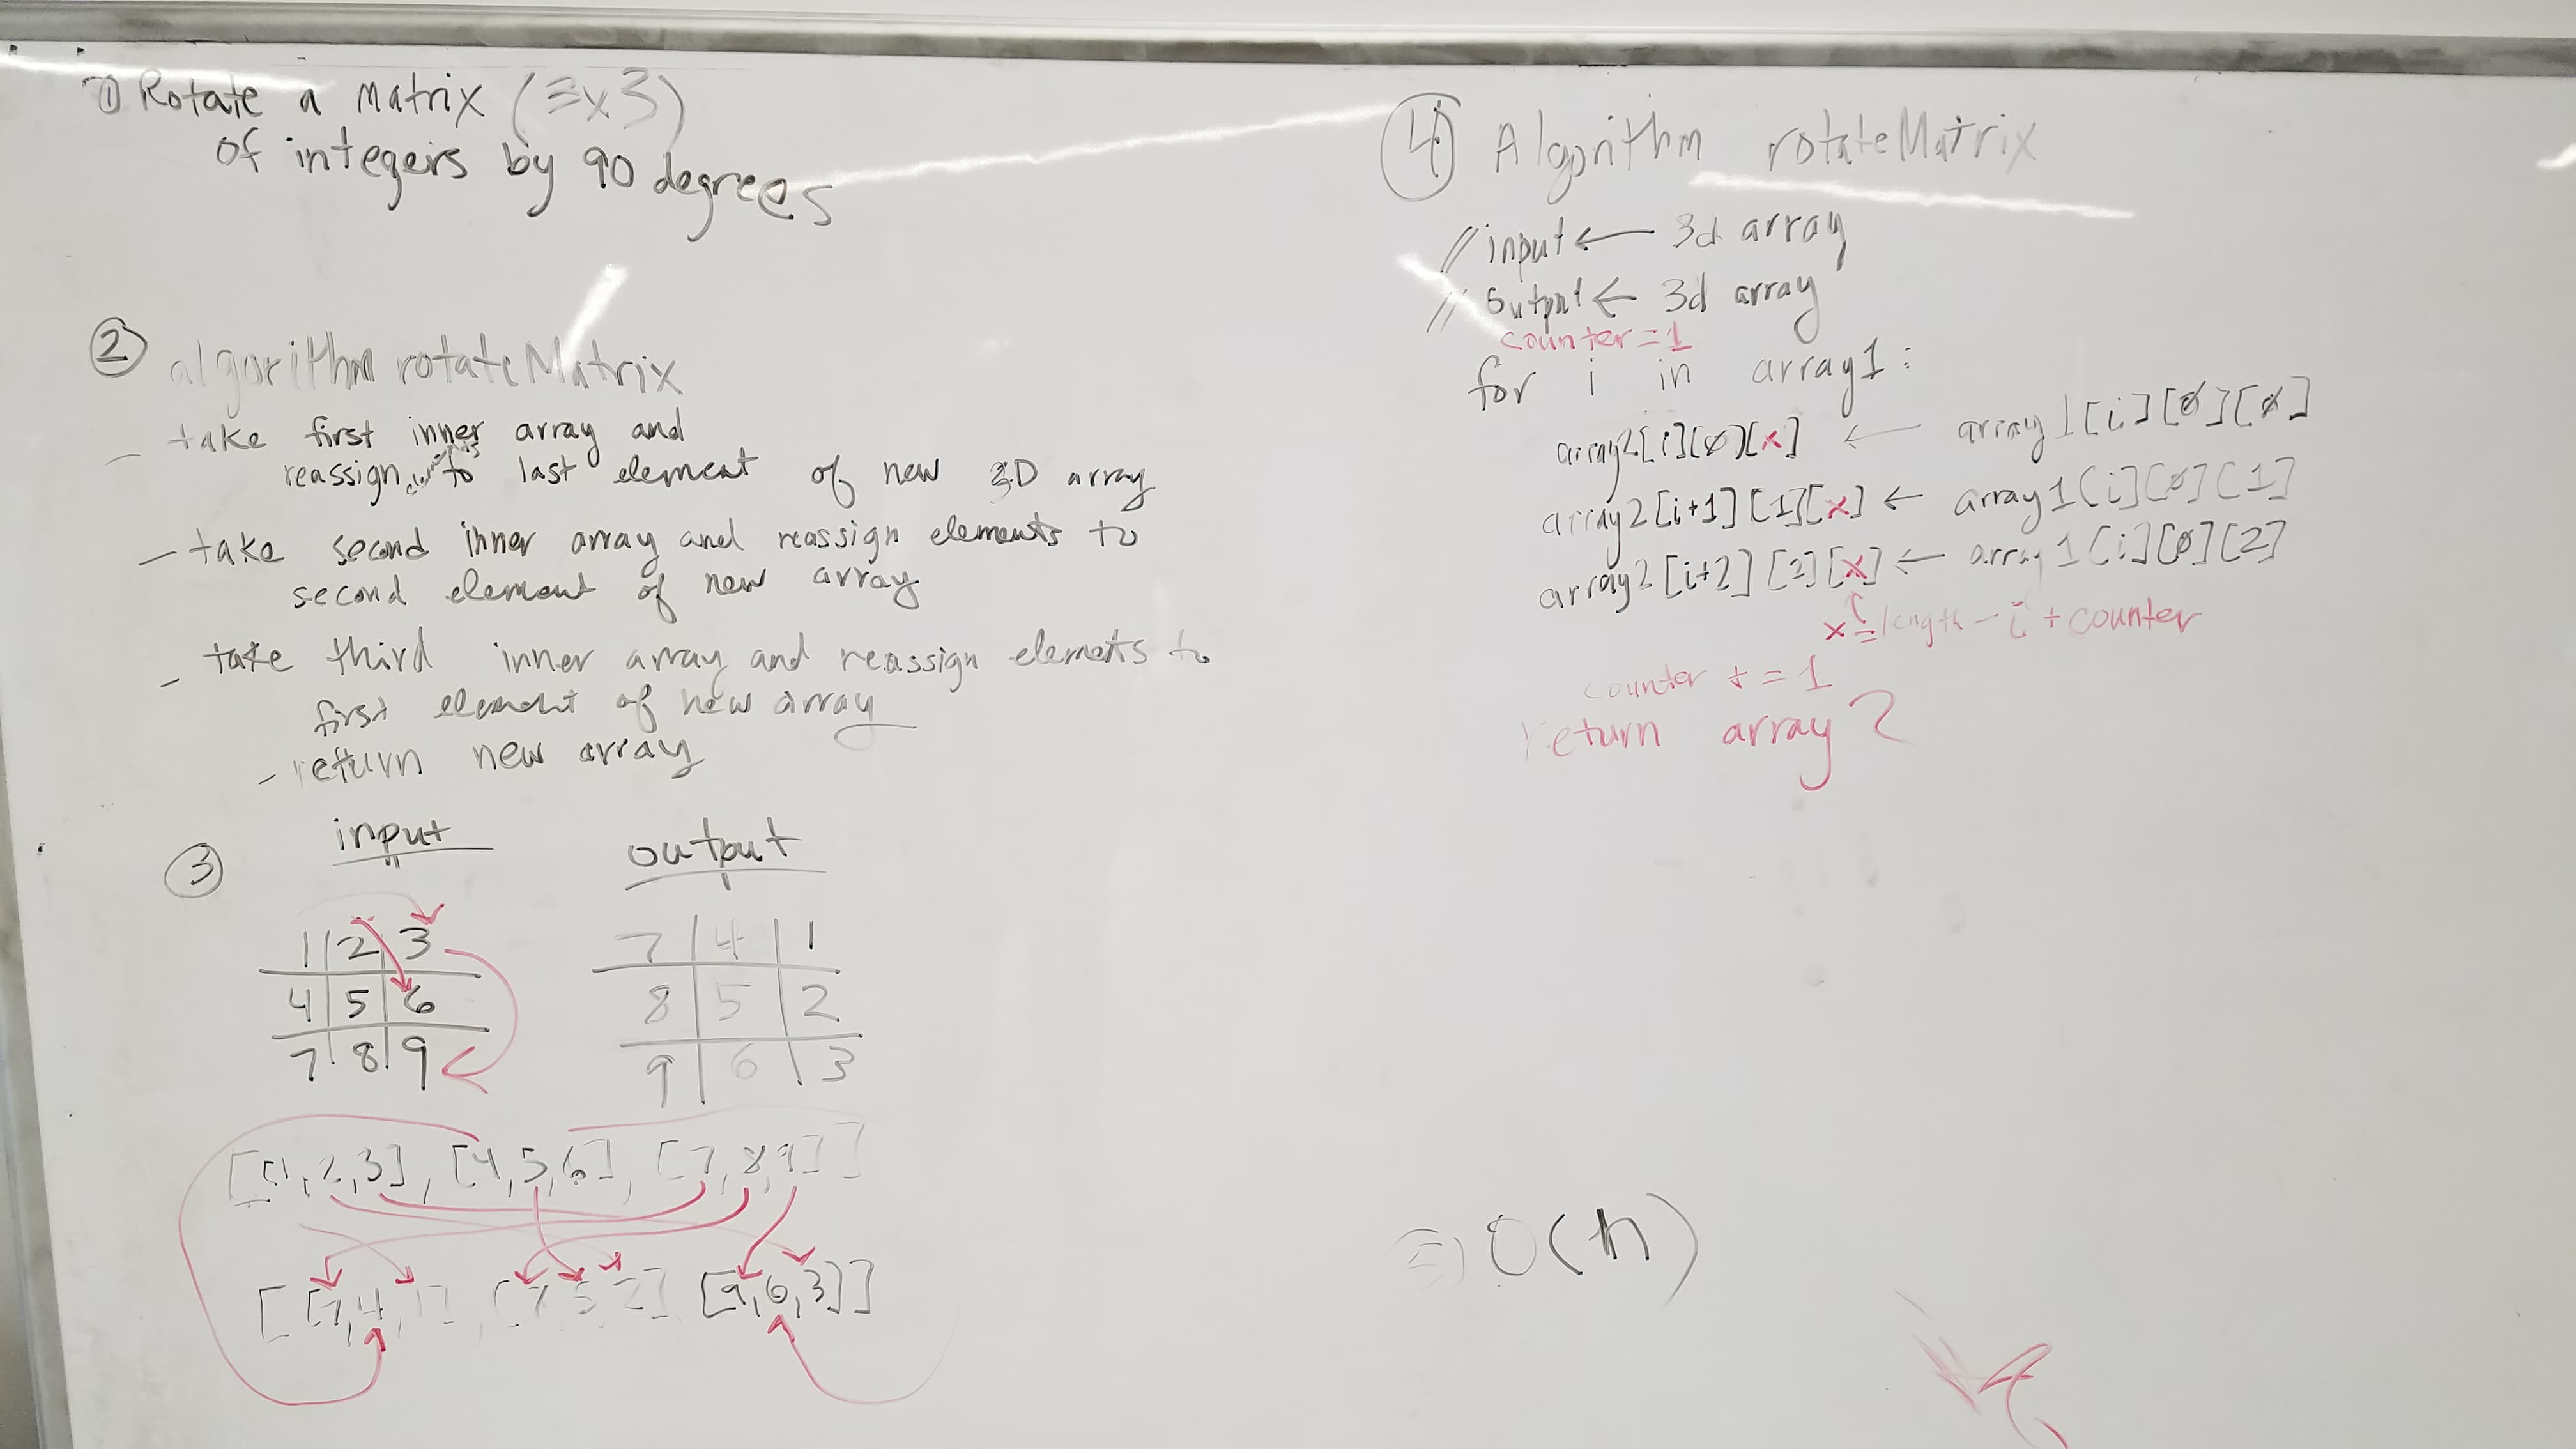 ① Rotate a Matrix (3x3)
of integers by 90 degrees
② algorithm rotateMatrix
- take first inner array and
reassign elements to last element of new 3D array
- take second inner array and reassign elements to
second element of new array
- take third inner array and reassign elements to
first element of new array
- return new array
③ input output
1 2 3
4 5 6
7 8 9
7 4 1
8 5 2
9 6 3
[[1,2,3], [4,5,6], [7,8,9]]
[[7,4,1] [ 5 2] [9,6,3]]
④ Algorithm rotateMatrix
// input ← 3d array
// output ← 3d array
counter = 1
for i in array1:
array2[i][0][x] ← array1[i][0][0]
array2[i+1][1][x] ← array1[i][0][1]
array2[i+2][2][x] ← array1[i][0][2]
x = length - i + counter
counter += 1
return array2
O(n)